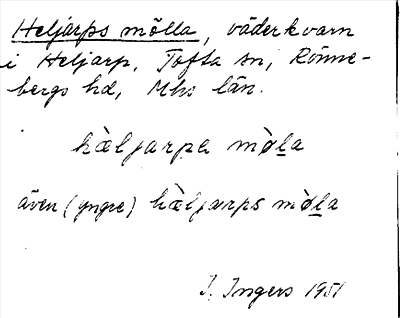 Heljarps mölla, väderkvarn
i Heljarp, Tofta sn, Rönne-
bergs hd, Mhs län.
hæ̀ljarpa mø̀la
även (yngre) hæ̀ljarps mø̀la
I. Ingers 1951